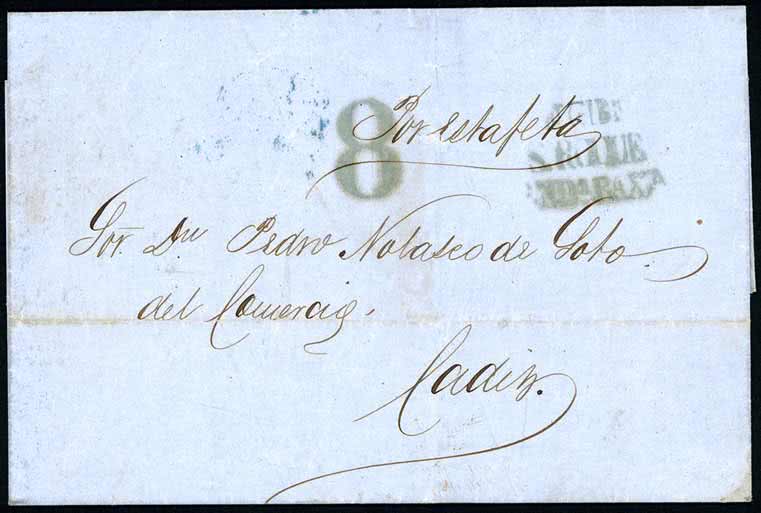 8
Por estafeta
S. ROQUE
ANDA BAXA
Sor. Dn Pedro Nolasco de Soto
del Comercio.
Cadiz.